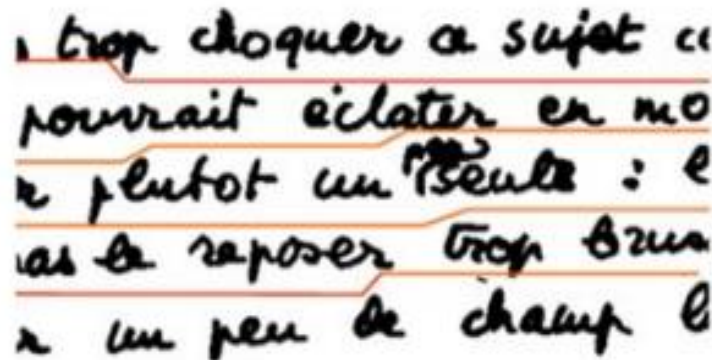 trop choquer ce sujet
pourrait éclater en mo
plutot un seule : l
as le reposer trop brus
un peu de champ l